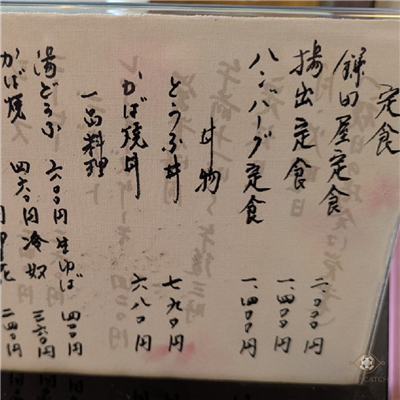 定食
鎌田屋定食 二、〇〇〇円
揚出定食 一、四〇〇円
ハンバーグ定食 一、四〇〇円
丼物
とうふ丼 七九〇円
かば焼丼 六八〇円
一品料理
湯どうふ 六〇〇円 生ゆば 四〇〇円
かば焼 四六〇円 冷奴 三六〇円
二四〇円